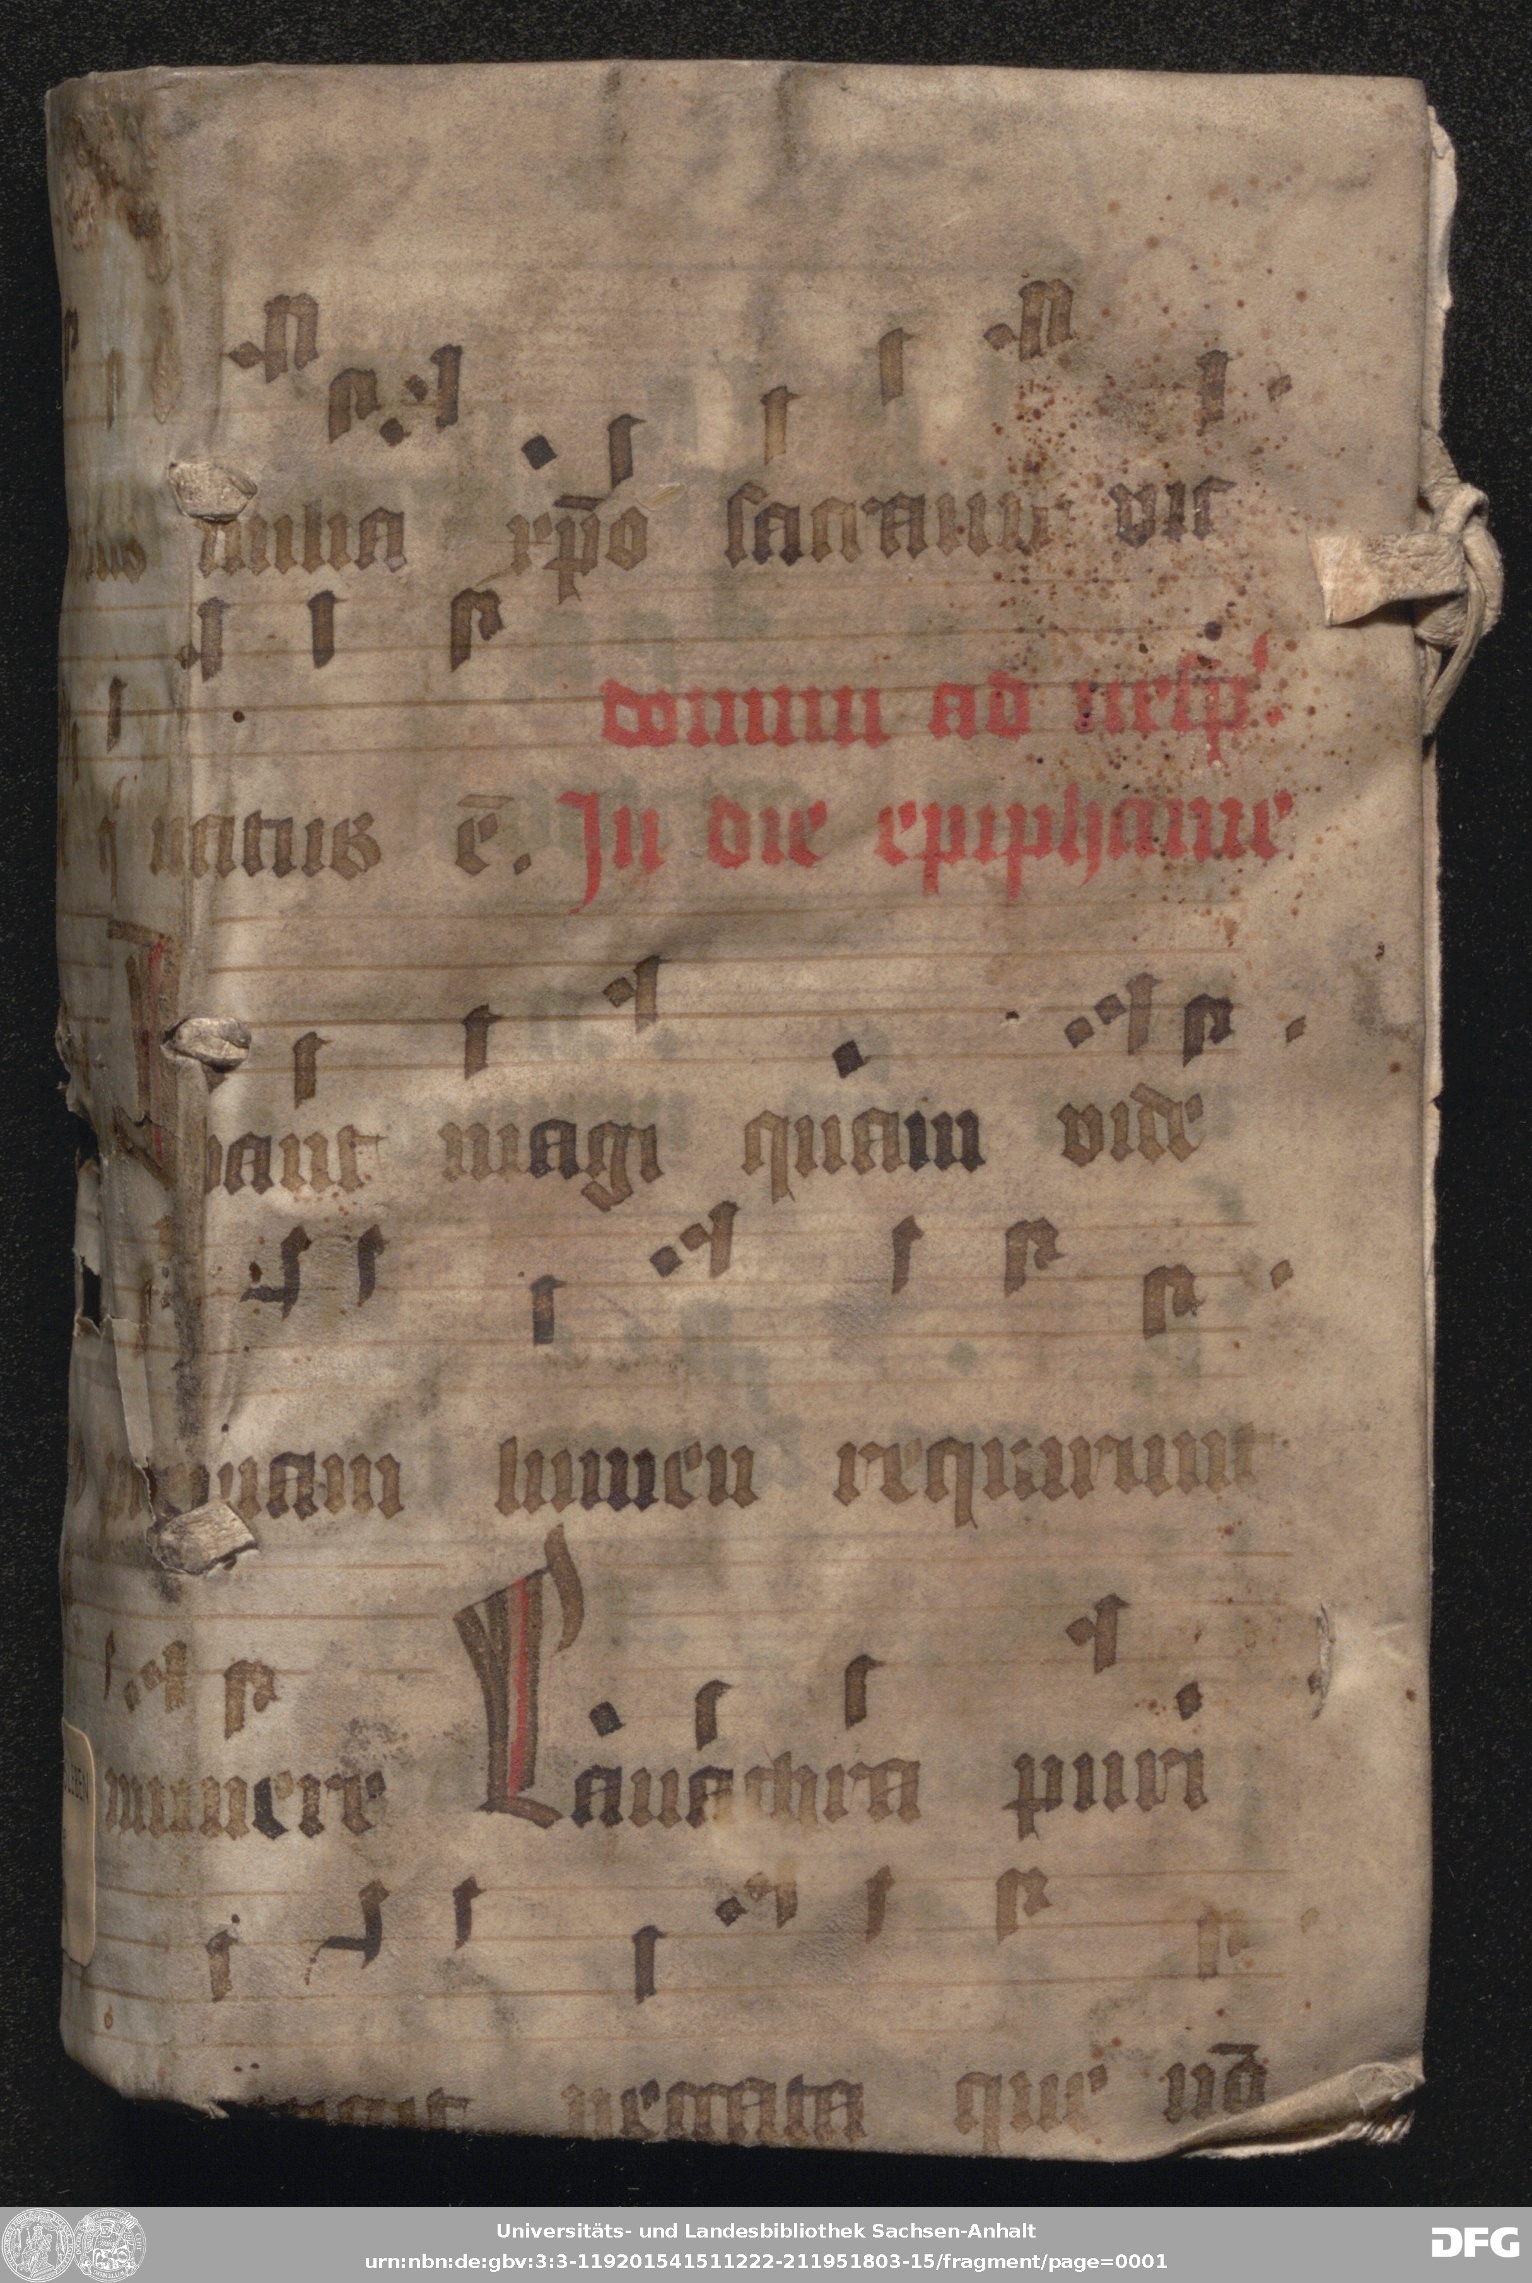 milia xp̄o sacratum vir
domini ad vesp'.
natus ē. In die epiphanie
bant magi quam vide
quam lumen requirunt
munere Lauachra puri
negata que nō
Universitäts- und Landesbibliothek Sachsen-Anhalt
urn:nbn:de:gbv:3:3-119201541511222-211951803-15/fragment/page=0001
DFG